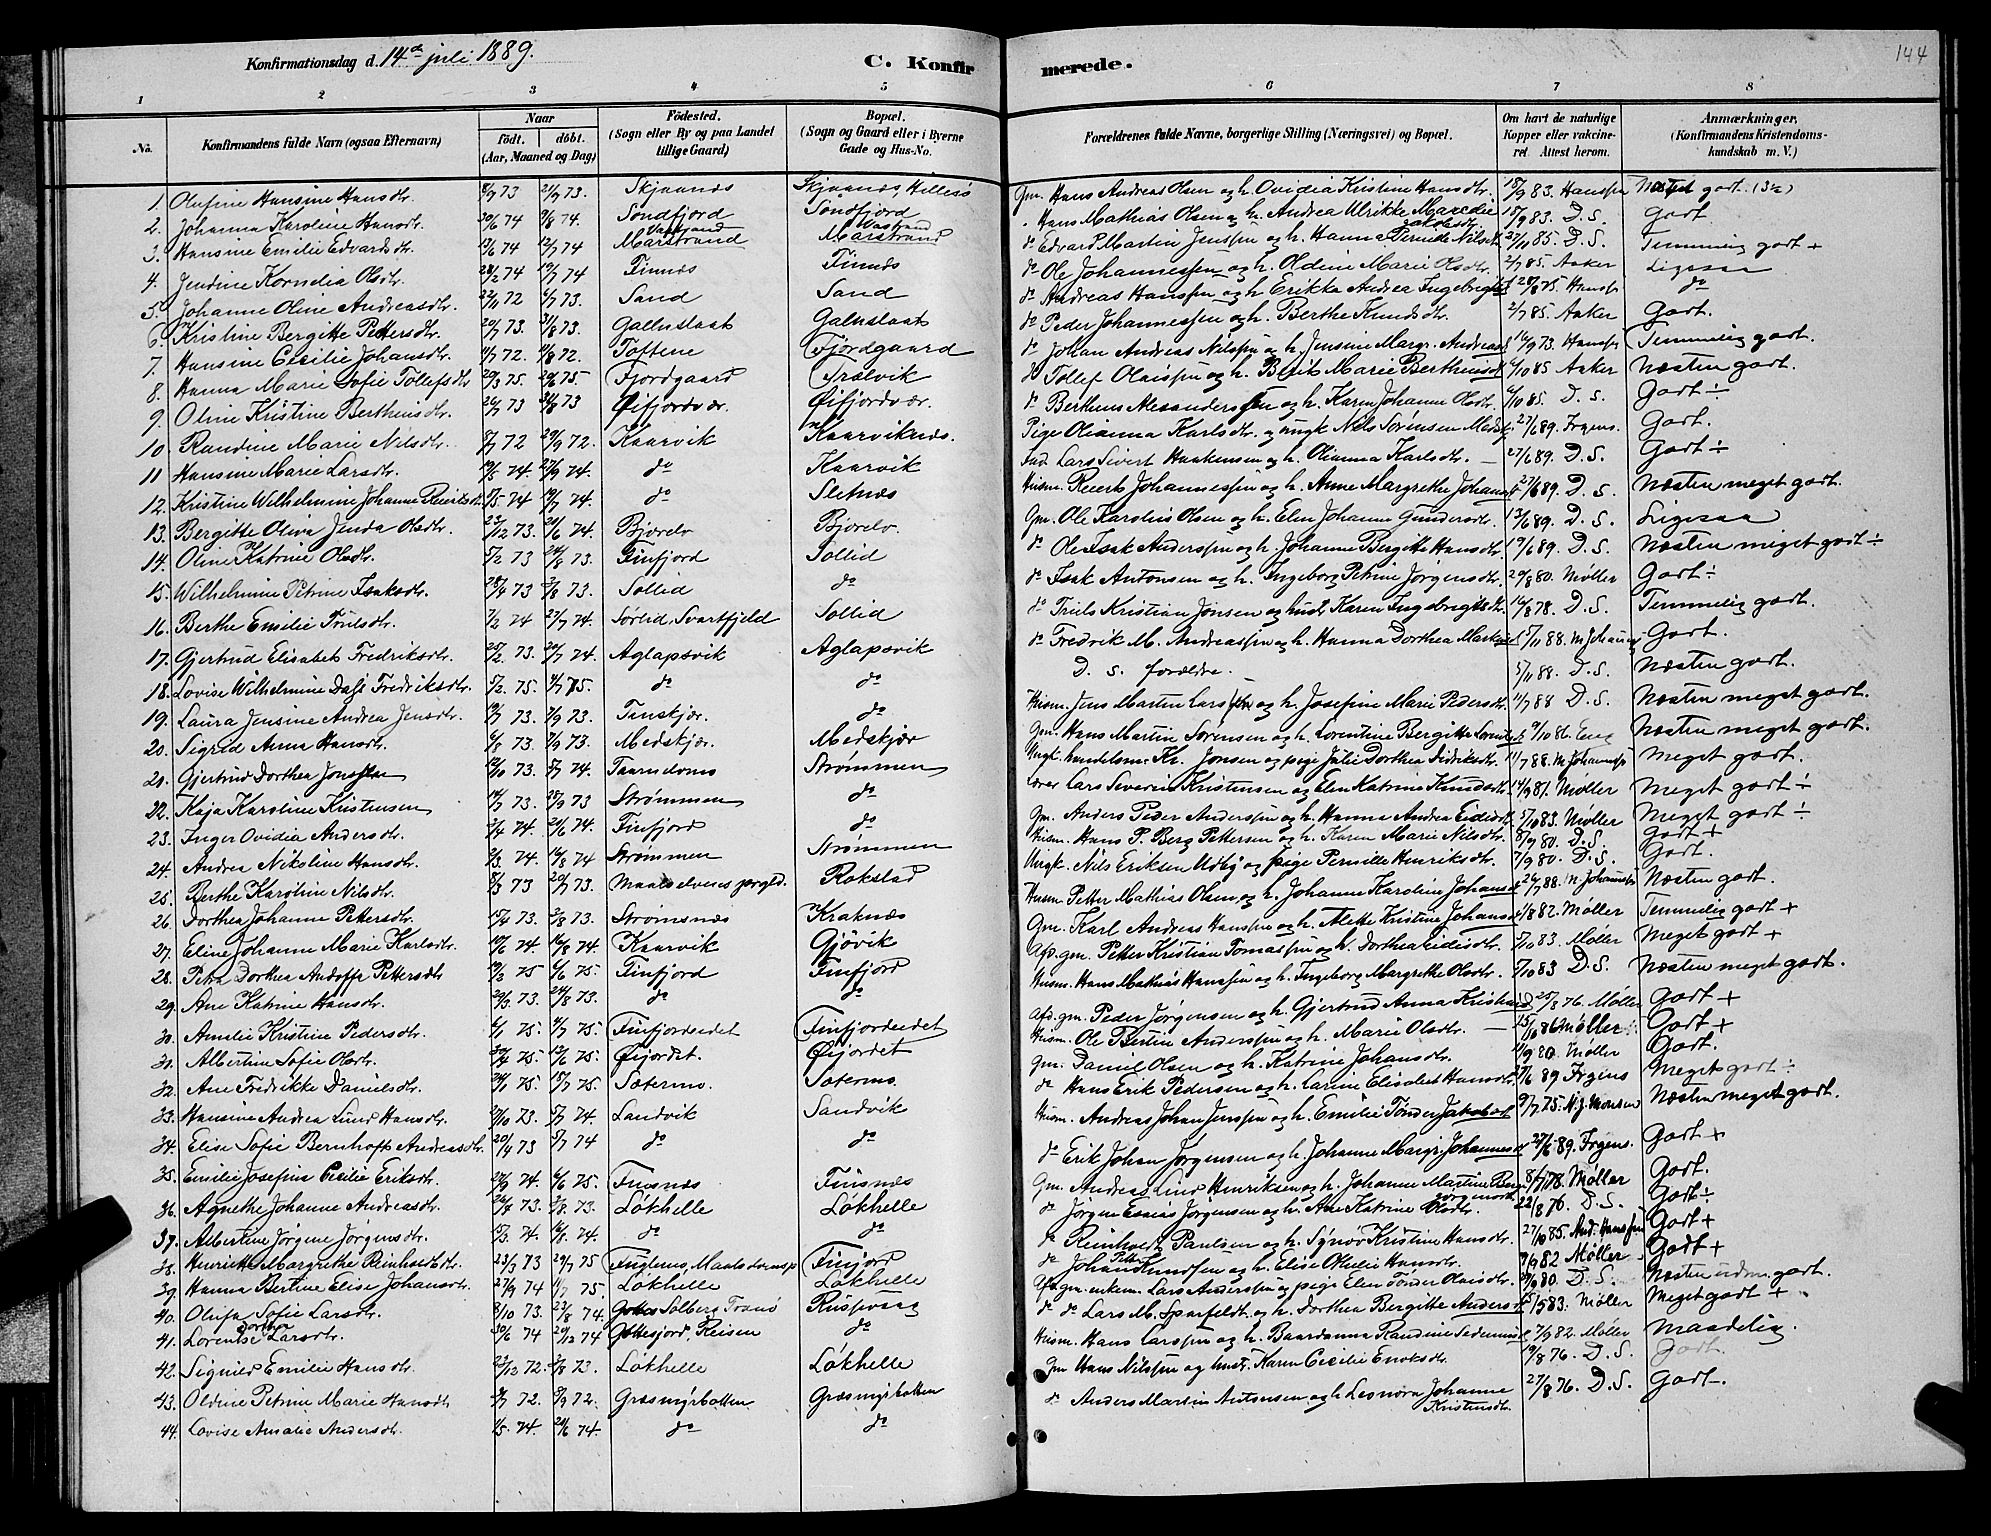 Konfirmationsdag d. 14de juli 1889.
C. Konfirmerede.
144
1 2 3 4 5 6 7 8
No. Konfirmandens fulde Navn (ogsaa Efternavn) Naar født. døbt. (Aar, Maaned og Dag) Födested. (Sogn eller By og paa Landet tillige Gaard) Bopæl. (Sogn og Gaard eller i Byerne Gade og Hus-No. Forældrenes fulde Navne, borgerlige Stilling (Næringsvei) og Bopæl. Om havt de naturlige Kopper eller vakcineret. Attest herom. Anmærkninger, (Konfirmandens Kristendomskundskab m. V.)
1. Olufine Hansine Hansdtr. 8/9 73 21/9 73. Skjaanæs Skjaanæs Hillesø Gm. Hans Andreas Olsen og h. Ovidia Kristine Hansdtr. 18/9 83. Næsten godt (3½)
2. Johanna Karoline Hansdtr. 30/6 74 9/8 74. Sandfjord Sandfjord Hans Mathias Olsen og h. Andrea Ulrikke Jakobsdtr. 18/9 83. D. S. Godt.
3. Hansine Emilie Edvardsdtr. 13/6 74 12/7 74 Marstrand Marstrand do Edvard Martin Jenssen og h. Hanna Pernide Nilsdtr. 27/11 85. D. S. Temmelig godt +
4. Jendine Kornelia Olsdtr. 28/2 74 19/7 74 Finnæs Finnæs do Ole Johannessen og h. Oldine Marie Olsdtr. 2/7 85. Aaker Ligesaa
5. Johanne Oline Andreasdtr. 22/11 72 6/7 73. Sand Sand do Andreas Hanssen og h. Erikka Andrea Ingebrigtsd. do
6. Kristine Bergitte Pettersdtr. 20/7 73. 31/8 73. Galnslaat Galnslaat do Peder Johannessen og h. Berthe Knudsdtr. 2/7 85 Aaker Godt.
7. Hansine Cecilie Johansdtr. 11/7 72. 11/8 72. Toftene Fjordgaard do Johan Andreas Nilssen og h. Jensine Margr. Andreasd. 16/9 73. Temmelig godt.
8. Hanna Marie Sofie Tollefsdtr 20/3 75. 20/6 75. Fjordgaard Trælvik do Tollef Olaissen og h. Berit Marie Bertheusd. 6/10 85 Aaker Næsten godt.
9. Oline Kristine Bertheusdtr. 26/7 73 24/8 73 Øifjordvær. Øifjordvær. do Bertheus Alexandersen og h. Karen Johanne Olsdtr. 6/10 85. D. S. Godt ÷
10. Randine Marie Nilsdtr. 8/7 72 29/9 72. Kaarvik Kaarviknæs. Pige Olianna Karlsdtr. og ungk. Nils Sørensen 27/6 89. Irgens. Godt.
11. Hansine Marie Larsdtr. 19/5 74. 27/9 74. do Kaarvik Ind. Lars Sivert Haakensen og h. Olianna Karlsdtr. 27/6 89. D. S. Godt ÷
12. Kristine Wilhelmine Johanne Reiertsdtr. 5/5 74 19/7 74. do Sletnæs Husm. Reiert Johannessen og h. Anne Margrethe Johansd. 27/6 89. D. S. Næsten meget godt.
13. Bergitte Oliva Jenda Olsdtr. 23/12 73. 20/6 74. Bjorelv Bjorelv Gm. Ole Karolius Olsen og h. Elen Johanne Gundersdtr. 13/6 89. D. S. Ligesaa
14. Oline Katrine Olsdtr. 5/2 73 24/8 73. Finfjord Sollid do Ole Isak Anderssen og h. Johanne Bergitte Hansdtr. 19/6 89. D. S. Næsten meget godt ÷
15. Wilhelmine Petrine Isaksdtr. 28/4 73 3/8 73. Sollid do do Isak Antonsen og h. Ingeborg Petrine Jørgensdtr. 29/8 80. Møller Godt ÷
16. Berthe Emilie Trulsdtr. 7/2 74 27/7 74. Sørlid, Svartfjeld Sollid do Truls Kristian Jonsen og hust. Karen Ingebrigtsdtr. 16/8 78. D. S. Temmelig godt.
17. Gjertrud Elisabet Fredriksdtr. 25/2 73. 20/7 74. Aglapsvik Aglapsvik do Fredrik M. Andreassen og h. Hanna Dorthea 5/11 88. Godt.
18. Lovise Wilhelmine Fredriksdtr. 5/2 75. 4/7 75. do do D. S. forældre. 5/11 88. D. S. Næsten godt.
19. Laura Jensine Andrea Jensdtr. 19/7 73. 7/9 73. Finskjær. do Husm. Jens Martin Larssen og h. Josefine Marie Pedersdtr. 11/7 88 D. S. Næsten meget godt.
20. Sigrid Anna Hansdtr. 6/8 73. 7/9 73. Medskjær. Medskjær Gm. Hans Martin Sørensen og h. Lorentine Bergitte 9/10 86. Næsten meget godt.
21. Gjertrud Dorthea Jonssen 12/10 73. 5/7 74. Strømmen Ungk. handelsm. Kr. Jonsen og pige Julie Dorthea Didriksdtr. 11/7 88. Meget godt.
22. Kaja Karoline Kristensen 14/7 73. 28/9 73 Strømmen do Lærer Lars Severin Kristensen og Elen Katrine Knudsdtr. 14/9 81. Møller Meget godt ÷
23. Inger Ovidia Andersdtr. 3/4 74. 20/6 74. Finfjord do Gm. Anders Peder Anderssen og h. Hanna Andrea Eidisdtr. 5/10 83. Møller Meget godt ÷
24. Andrea Nikoline Hansdtr. 3/3 74. 16/8 74 Strømmen Strømmen Husm. Hans P. Berg Pettersen og h. Karen Marie Nilsdtr. 8/9 80. D. S. Godt +
25. Berthe Karoline Nilsdtr. 8/3 73 20/7 73. Maalselvens prgld. Rokstad Ungk. Nils Eriksen Udby og pige Pernille Henriksdtr. 7/9 80. D. S. Godt.
26. Dorthea Johanne Pettersdtr. 15/4 73. 3/8 73. Strømsnæs Kraknæs Husm. Petter Mathias Olsen og h. Johanne Karoline Johansd. 26/7 88. Næsten godt.
27. Eline Johanne Marie Karlsdtr. 10/6 74. 16/8 74. Kaarvik Gjøvik Gm. Karl Andreas Hanssen og h. Alette Kristine Johansd. 8 82. Møller Temmelig godt +
28. Petra Dorthea Andoffa Pettersdtr 19/3 75 6/6 75. Finfjord Finfjord Afs. gm. Petter Kristian Tomassen og h. Dorthea Eidisdtr. 5/10 83. Møller Meget godt +
29. Ane Katrine Hansdtr. 29/3 73. 24/8 73. do do Husm. Hans Mathias Hanssen og h. Ingeborg Margrethe Olsdtr. 5/10 83 D. S. Næsten meget godt.
30. Amelie Kristine Pedersdtr. 6/1 75. 4/7 75. Finfjordeidet Finfjordeidet Afs. gm. Peder Jørgensen og h. Gjertrud Anna 25/8 76. Møller Godt +
31. Albertine Sofie Olsdtr. 30/4 75. 13/6 75. Øijordet. Øijordet Husm. Ole Bertin Anderssen og h. Marie Olsdtr. 15/10 86 Møller Godt +
32. Ane Fredrikke Danielsdtr. 24/1 75. 15/7 75. Sætermo. Sætermo. Gm. Daniel Olsen og h. Katrine Johansdtr. 11/9 80. Møller Godt.
33. Hansine Andrea Lund Hansdtr. 3/10 73. 5/7 74. Sandvik Sandvik do Hans Erik Pedersen og h. Carine Elisabet Hansdtr. 27/6 89 Irgens Meget godt ÷
34. Elise Sofie Bernhoft Andreasdtr. 20/4 73 5/7 74 do do Husm. Andreas Johan Jenssen og h. Emilie Tønder Jakobsd. 9/7 75. N. J. Monsen Næsten meget godt.
35. Emilie Josefine Cecilie Eriksdtr. 24/9 74. 6/6 75. Finsnæs Finsnæs do Erik Johan Jørgensen og h. Johanne Margr. Johannesd. 27/6 89. Irgens. Godt +
36. Agnethe Johanne Andreasdtr. 26/4 73. 3/8 73. Løkhelle Løkhelle Gm. Andreas Lund Henriksen og h. Johanne Martine Berg Jørgensdtr. 8/7 78. Møller Godt.
37. Albertine Jørgine Jørgensdtr. 15/3 74. 16/8 74. do do do Jørgen Esaias Jørgensen og h. Ane Katrine Olsdtr. 22/8 76. D. S. Godt ÷
38. Henriette Margrethe Reinholdtdtr. 23/3 73 29/7 75 Finfjord do Reinholdt Paulsen og h. Synøv Kristine Hansdtr. 27/10 85. And. Hanssen Godt +
39. Hanna Bertine Elise Johansdtr. 27/9 74 11/7 75. Løkhelle Løkhelle do Johan Petter Knudsen og h. Elise Otelie Hansdtr. 9/9 82 Møller Godt +
40. Olufa Sofie Larsdtr. 8/10 73. 23/8 74. Solberg Tranø Afs. gm. enkem. Lars Anderssen og pige Elen Tønder Olaisdtr. 80. D. S. Næsten godt.
41. Lorentse Dorthea Larsdtr. 30/6 74 20/12 74 Reisen do do do Lars M. Sparfeldt og h. Dorthea Bergitte Andersd. 83. Møller Meget godt +
42. Signe Emilie Hansdtr. 23/12 72. 3/8 73. Løkhelle Løkhelle Husm. Hans Larssen og h. Baardanna Randine 7/9 82. Møller Maadelig.
43. Oldine Petrine Marie Hansdtr 3/7 72. 8/9 72. Græsmyrbotten Græsmyrbotten Gm. Hans Nilssen og hust. Karen Cecilie Enoksdtr. 19/8 76. D. S. Godt.
44. Lovise Amalie Andersdtr. 1/5 74. 20/6 74. do do do Anders Martin Antonsen og h. Leonora Johanne Kristensdtr. 27/8 76. D. S. Godt.